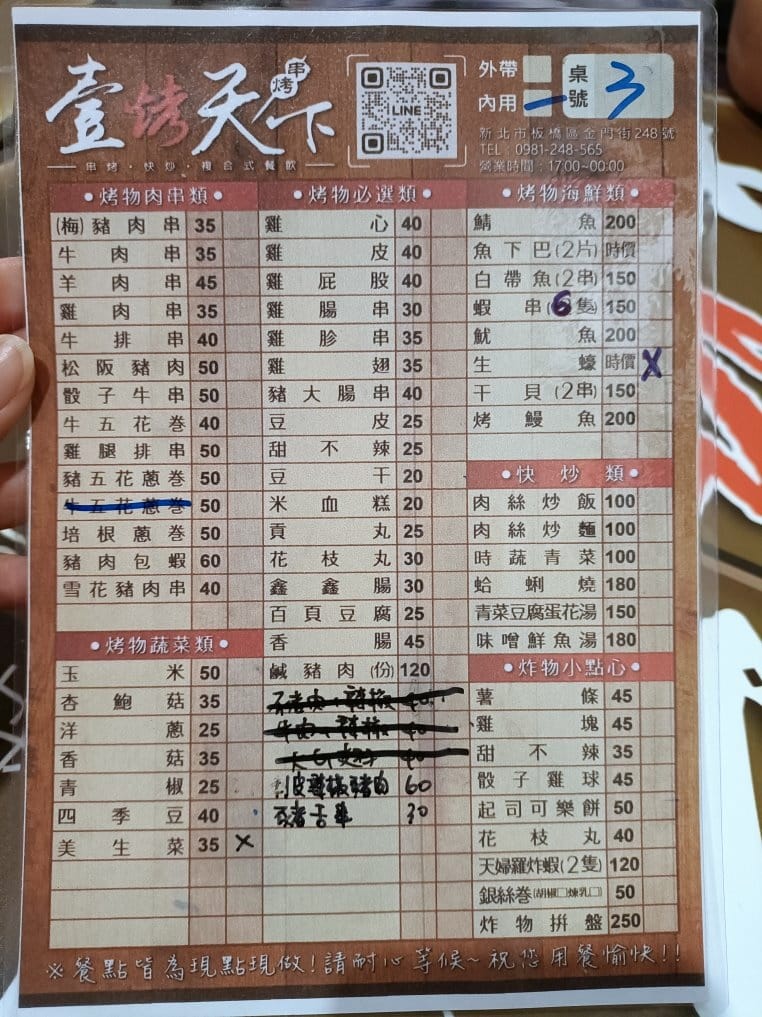 壹烤天下
串烤
LINE
外帶
內用 一
桌號 3
串烤・快炒・複合式餐飲
新北市板橋區金門街248號
TEL：0981-248-565
營業時間：17:00~00:00
•烤物肉串類•
(梅)豬肉串 35
牛肉串 35
羊肉串 45
雞肉串 35
牛排串 40
松阪豬肉 50
骰子牛串 50
牛五花巻 40
雞腿排串 50
豬五花蔥巻 50
牛五花蔥巻 50
培根蔥巻 50
豬肉包蝦 60
雪花豬肉串 40
•烤物蔬菜類•
玉米 50
杏鮑菇 35
洋蔥 25
香菇 35
青椒 25
四季豆 40
美生菜 35 X
•烤物必選類•
雞心 40
雞皮 40
雞屁股 40
雞腸串 30
雞胗串 35
雞翅 35
豬大腸串 40
豆皮 25
甜不辣 25
豆干 20
米血糕 20
貢丸 25
花枝丸 30
鑫鑫腸 30
百頁豆腐 25
香腸 45
鹹豬肉(份) 120
皮辣椒豬肉 60
豬舌串 30
•烤物海鮮類•
鯖魚 200
魚下巴(2片) 時價
白帶魚(2串) 150
蝦串(6隻) 150
魷魚 200
生蠔 時價 X
干貝(2串) 150
烤鰻魚 200
•快炒類•
肉絲炒飯 100
肉絲炒麵 100
時蔬青菜 100
蛤蜊燒 180
青菜豆腐蛋花湯 150
味噌鮮魚湯 180
•炸物小點心•
薯條 45
雞塊 45
甜不辣 35
骰子雞球 45
起司可樂餅 50
花枝丸 40
天婦羅炸蝦(2隻) 120
銀絲巻(胡椒□煉乳□) 50
炸物拼盤 250
※餐點皆為現點現做!請耐心等候~祝您用餐愉快!!